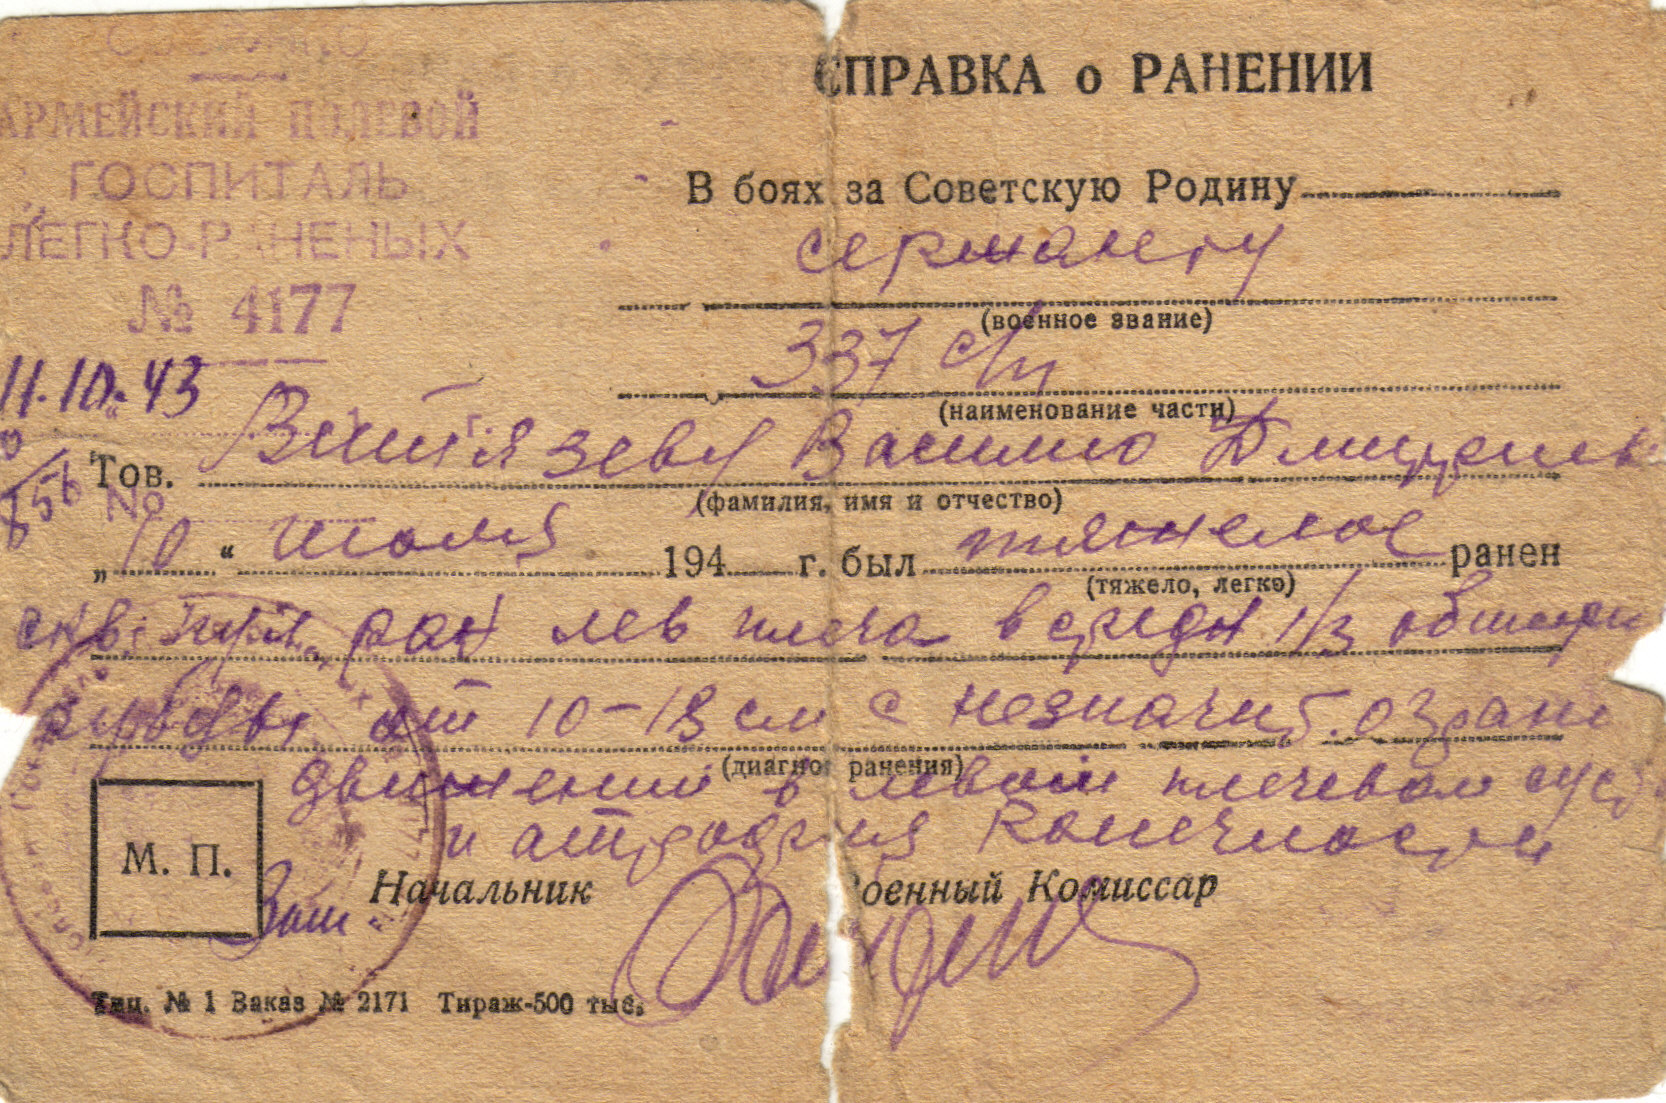 АРМЕЙСКИЙ ПОЛЕВОЙ
ГОСПИТАЛЬ
ЛЕГКО-РАНЕНЫХ
№ 4177
11.10.43
г.
№
СПРАВКА о РАНЕНИИ
В боях за Советскую Родину
сержанту
(военное звание)
337 с/п
(наименование части)
Тов. Витязеву Василию
(фамилия, имя и отчество)
„10“ июля 194 г. был тяжелое ранен
(тяжело, легко)
скв. ран лев плеча в средн 1/3
от 10-13 см с незначит.
(диагноз ранения)
движений в левом плечевом
и атрофия конечности
М. П.
Зам Начальник Военный Комиссар
Тип. № 1 Заказ № 2171 Тираж-500 тыс.